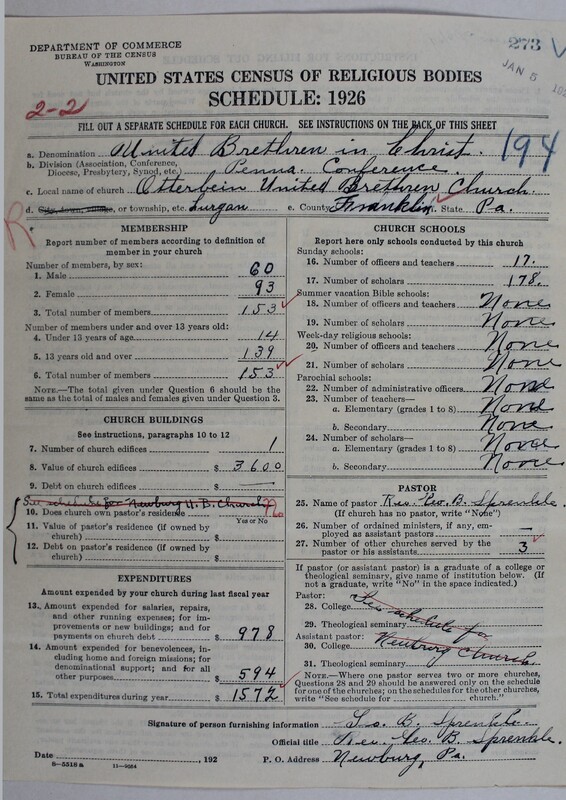 DEPARTMENT OF COMMERCE
BUREAU OF THE CENSUS
WASHINGTON
273
JAN 5
UNITED STATES CENSUS OF RELIGIOUS BODIES
SCHEDULE: 1926
2-2
FILL OUT A SEPARATE SCHEDULE FOR EACH CHURCH. SEE INSTRUCTIONS ON THE BACK OF THIS SHEET
194
a. Denomination United Brethren in Christ.
b. Division (Association, Conference, Diocese, Presbytery, Synod, etc.) Penna. Conference.
c. Local name of church Otterbein United Brethren Church.
d. City, town, village, or township, etc. Lurgan e. County Franklin State Pa.
R
MEMBERSHIP
Report number of members according to definition of
member in your church
Number of members, by sex:
1. Male 60
2. Female 93
3. Total number of members 153
Number of members under and over 13 years old:
4. Under 13 years of age 14
5. 13 years old and over 139
6. Total number of members 153
NOTE.—The total given under Question 6 should be the
same as the total of males and females given under Question 3.
CHURCH BUILDINGS
See instructions, paragraphs 10 to 12
7. Number of church edifices 1
8. Value of church edifices $ 3600
9. Debt on church edifices $ —
See schedule for Newburg U. B. Church
10. Does church own pastor's residence No
Yes or No
11. Value of pastor's residence (if owned by
church) $
12. Debt on pastor's residence (if owned by
church) $
EXPENDITURES
Amount expended by your church during last fiscal year
13. Amount expended for salaries, repairs,
and other running expenses; for im-
provements or new buildings; and for
payments on church debt $ 978
14. Amount expended for benevolences,
including home and foreign missions; for
denominational support; and for all
other purposes $ 594
15. Total expenditures during year $ 1572
CHURCH SCHOOLS
Report here only schools conducted by this church
Sunday schools:
16. Number of officers and teachers 17.
17. Number of scholars 178.
Summer vacation Bible schools:
18. Number of officers and teachers None
19. Number of scholars None
Week-day religious schools:
20. Number of officers and teachers None
21. Number of scholars None
Parochial schools:
22. Number of administrative officers None
23. Number of teachers—
a. Elementary (grades 1 to 8) None
b. Secondary None
24. Number of scholars—
a. Elementary (grades 1 to 8) None
b. Secondary None
PASTOR
25. Name of pastor Rev. Geo. B. Sprenkle.
(If church has no pastor, write "None")
26. Number of ordained ministers, if any, em-
ployed as assistant pastors
27. Number of other churches served by the
pastor or his assistants 3
If pastor (or assistant pastor) is a graduate of a college or
theological seminary, give name of institution below. (If
not a graduate, write "No" in the space indicated.)
Pastor:
28. College See schedule for
29. Theological seminary
Assistant pastor: Newburg Church
30. College
31. Theological seminary
NOTE.—Where one pastor serves two or more churches,
Questions 28 and 29 should be answered only on the schedule
for one of the churches; on the schedules for the other churches,
write "See schedule for church."
Signature of person furnishing information Geo. B. Sprenkle.
Official title Rev. Geo. B. Sprenkle.
Date , 192 P. O. Address Newburg, Pa.
8-5518 a 11-9084